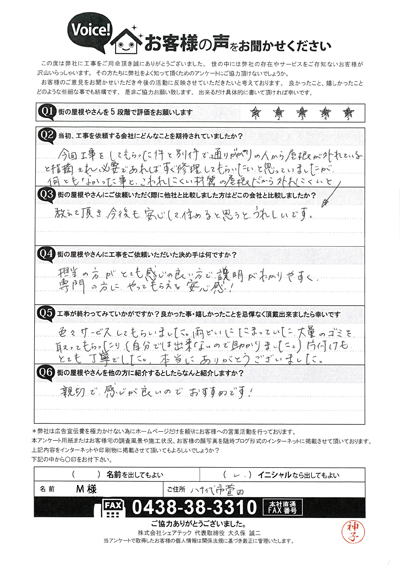 Voice!
お客様の声をお聞かせください
この度は弊社に工事をご用命頂き誠にありがとうございました。世の中には弊社の存在やサービスをご存知ないお客様が
沢山いらっしゃいます。その方たちに弊社をよく知って頂くためのアンケートにご協力頂けないでしょうか。
お客様のご意見をお聞かせいただき今後の活動に反映させていただきたいと考えております。良かったこと、嬉しかったこと
どのような些細な事でも結構です。是非ご協力お願い致します。出来るだけ具体的に書いて頂ければ幸いです。
Q1 街の屋根やさんを5段階で評価をお願いします ★ ★ ★ ★ ★
Q2 当初、工事を依頼する会社にどんなことを期待されていましたか?
今回工事をしてもらった件と別件で通りがかりの人から屋根が外れている
と指摘され必要であればすぐ修理してもらいたいと思っていましたが
何ともなかった事と、こわれにくい材質の屋根だから外れにくいと
Q3 街の屋根やさんにご依頼いただく際に他社と比較しました方はどこの会社と比較しましたか?
教えて頂き今後も安心して住めると思うとうれしいです。
Q4 街の屋根やさんに工事をご依頼いただいた決め手は何ですか?
担当の方がとても感じの良い方で説明がわかりやすく、
専門の方にやってもらえる安心感!
Q5 工事が終わってみていかがですか?良かった事・嬉しかったことを忌憚なく頂戴出来ましたら幸いです
色々サービスしてもらいました。雨どいにたまっていた大量のゴミを
取ってもらったり(自分では出来ないので助かりました。)片付けも
とても丁寧でした。本当にありがとうございました。
Q6 街の屋根やさんを他の方に紹介するとしたらなんと紹介しますか?
親切で感じが良いのでおすすめです!
*弊社は広告宣伝費を極力かけない為にホームページだけを頼りにお客様への営業活動を行っております。
本アンケート用紙またはお客様宅の調査風景や施工状況、お客様の顔写真を随時ブログ形式のインターネットに掲載させて頂いております。
上記内容をインターネットや印刷物に掲載させて頂いてもよろしいでしょうか?
下記の中から〇印をお付けください。
( )名前を出してもよい ( )イニシャルなら出してもよい
名前 M様 ご住所 八千代市萱田
FAX 0438-38-3310 本社直通 FAX番号
ご協力ありがとうございました。
株式会社シェアテック 代表取締役 大久保 誠二
当アンケートで取得したお客様の個人情報は関係法規に基づき厳正に管理いたします。